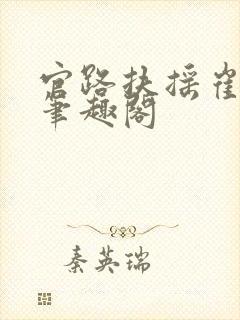 官路扶摇崔
笔趣阁
秦英瑞